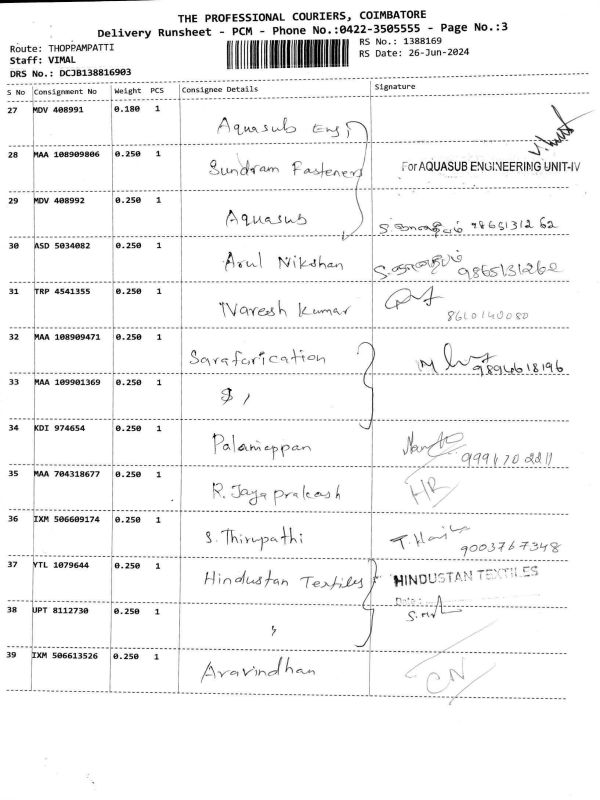 THE PROFESSIONAL COURIERS, COIMBATORE
Delivery Runsheet - PCM - Phone No.:0422-3505555 - Page No.:3
Route: THOPPAMPATTI
Staff: VIMAL
DRS No.: DCJB138816903
RS No.: 1388169
RS Date: 26-Jun-2024
S No Consignment No Weight PCS Consignee Details Signature
27 MDV 408991 0.180 1 Aquasub Eng,
28 MAA 108909806 0.250 1 Sundram Fasteners For AQUASUB ENGINEERING UNIT-IV
29 MDV 408992 0.250 1 Aquasub 9865131262
30 ASD 5034082 0.250 1 Arul Nikshan 9865131262
31 TRP 4541355 0.250 1 Naresh Kumar 8610140080
32 MAA 108909471 0.250 1 Sarafarication 9894618196
33 MAA 109901369 0.250 1
34 KDI 974654 0.250 1 Palaniappan
35 MAA 704318677 0.250 1 R. Jayaprakash HR
36 IXM 506609174 0.250 1 S. Thirupathi 9003767348
37 YTL 1079644 0.250 1 Hindustan Textiles HINDUSTAN TEXTILES
Date :
38 UPT 8112730 0.250 1 "
39 IXM 506613526 0.250 1 Aravindhan CN